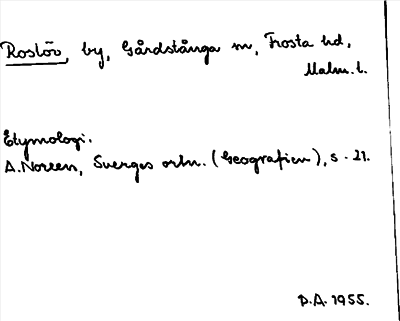 Roslöv, by, Gårdstånga sn, Frosta hd,
Malm. l.
Etymologi.
A. Noreen, Sveriges ortn. (Geografien), s. 21.
D.A. 1955.